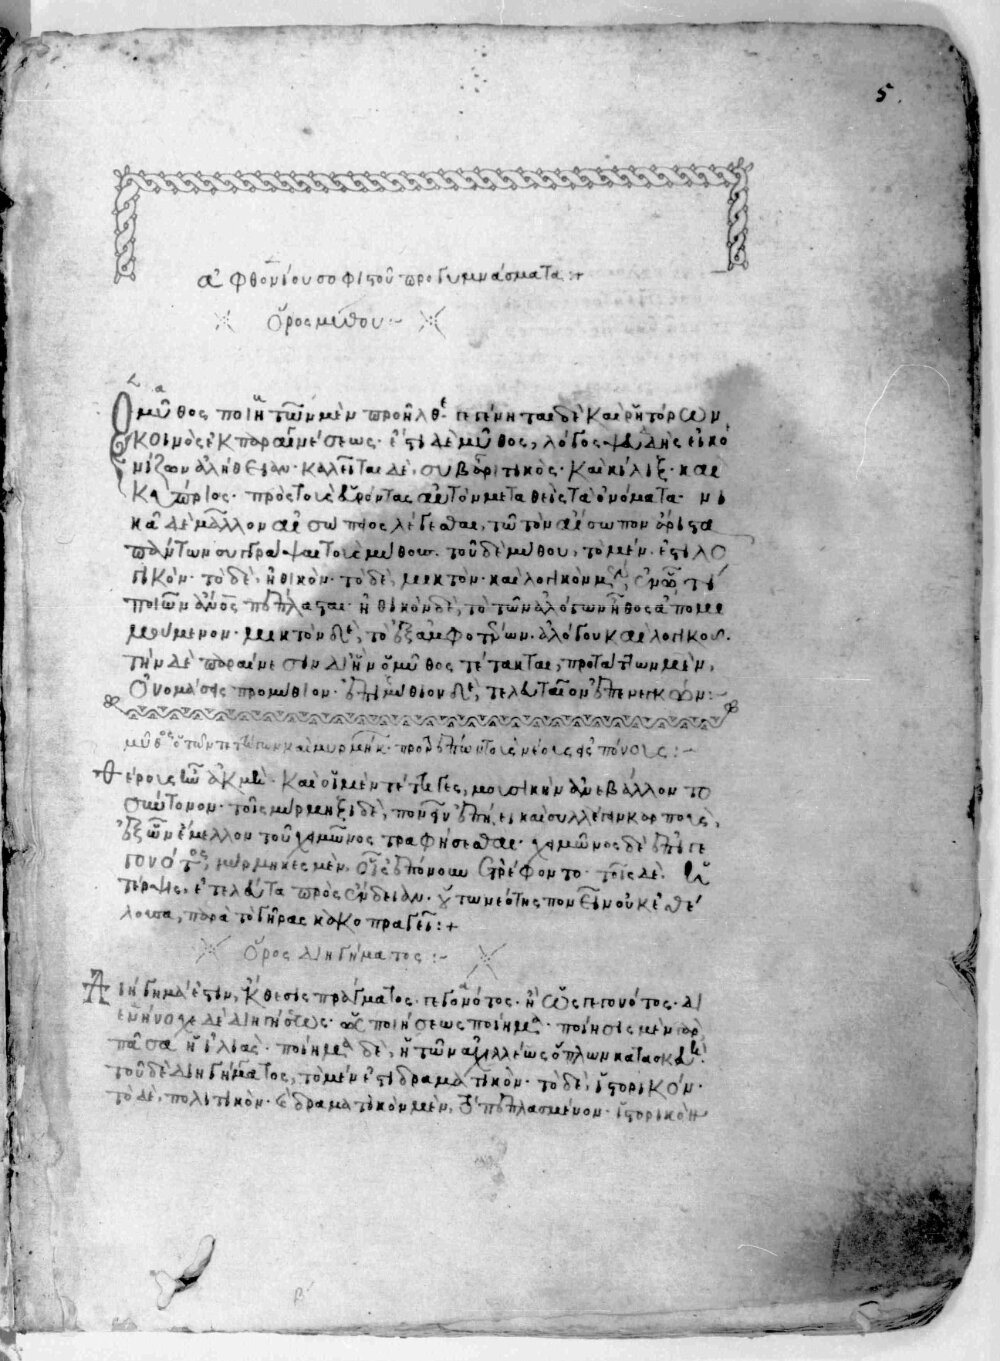 5.
ἀφθονίου σοφιστοῦ προγυμνάσματα :+
ὅρος μύθου :~
Ὁ μῦθος ποιητῶν μὲν προῆλθε· γεγένηται δὲ καὶ ῥητόρων
κοινὸς ἐκ παραινέσεως· ἔστι δὲ μῦθος, λόγος ψευδὴς εἰκο
νίζων ἀλήθειαν· καλεῖται δὲ, συβαριτικὸς· καὶ κίλιξ· καὶ
κύπριος· πρὸς τοὺς εὑρόντας αὐτὸν μεταθεὶς τὰ ὀνόματα· νι
κᾶ δὲ μᾶλλον αἰσώπειος λέγεσθαι, τῶ τὸν αἴσωπον ἄριστα
πάντων συγγράψαι τοὺς μύθους. τοῦ δὲ μύθου, τὸ μέν ἐστι λο
γικόν· τὸ δὲ, ἠθικόν· τὸ δὲ, μικτὸν· καὶ λογικὸν μὲν, ἐν ᾧ τι
ποιῶν ἄνος πέπλασται· ἠθικὸν δὲ, τὸ τῶν ἀλόγων ἦθος ἀπομι
μούμενον· μικτὸν δὲ, τὸ ἐξ ἀμφοτέρων. ἀλόγου καὶ λογικοῦ.
τὴν δὲ παραίνεσιν δι' ἣν ὁ μῦθος τέτακται, προτάττων μὲν,
ὀνομάσεις προμύθιον· ἐπιμύθιον δὲ, τελευταῖον ἐπενεγκών :~
μῦθος ὁ τῶν τεττίγων καὶ μυρμήκων προτρέπων τοὺς νέους εἰς πόνους :~
Θέρους ἦν ἀκμὴ· καὶ οἱ μὲν τέττιγες, μουσικὴν ἀνεβάλλοντο
σύντονον· τοῖς μύρμηξι δὲ, πονεῖν ἐπήει καὶ συλλέγειν καρποὺς,
ἐξ ὧν ἔμελλον τοῦ χειμῶνος τραφήσεσθαι· χειμῶνος δὲ ἐπιγε
γονότος, μύρμηκες μὲν, οἷς ἐπόνουν ἐτρέφοντο· τοῖς δὲ, ἡ
τέρψις, ἐτελεύτα πρὸς ἔνδειαν. οὕτω νεότης πονεῖν οὐκ ἐθέ
λουσα, παρὰ τὸ γῆρας κακοπραγεῖ :+
ὅρος διηγήματος :~
Διήγημά ἐστιν, ἔκθεσις πράγματος γεγονότος· ἢ ὡς γεγονότος· δι
ενήνοχε δὲ διήγησις διηγήματος ὡς ποιήσεως ποίημα· ποίησις μὲν γὰρ
πᾶσα ἡ ἰλιάς· ποίημα δὲ, ἡ τῶν ἀχιλλέως ὅπλων κατασκευή.
τοῦ δὲ διηγήματος, τὸ μέν ἐστι δραματικὸν· τὸ δὲ, ἱστορικόν·
τὸ δὲ, πολιτικὸν· καὶ δραματικὸν μὲν, τὸ πεπλασμένον· ἱστορικὸν